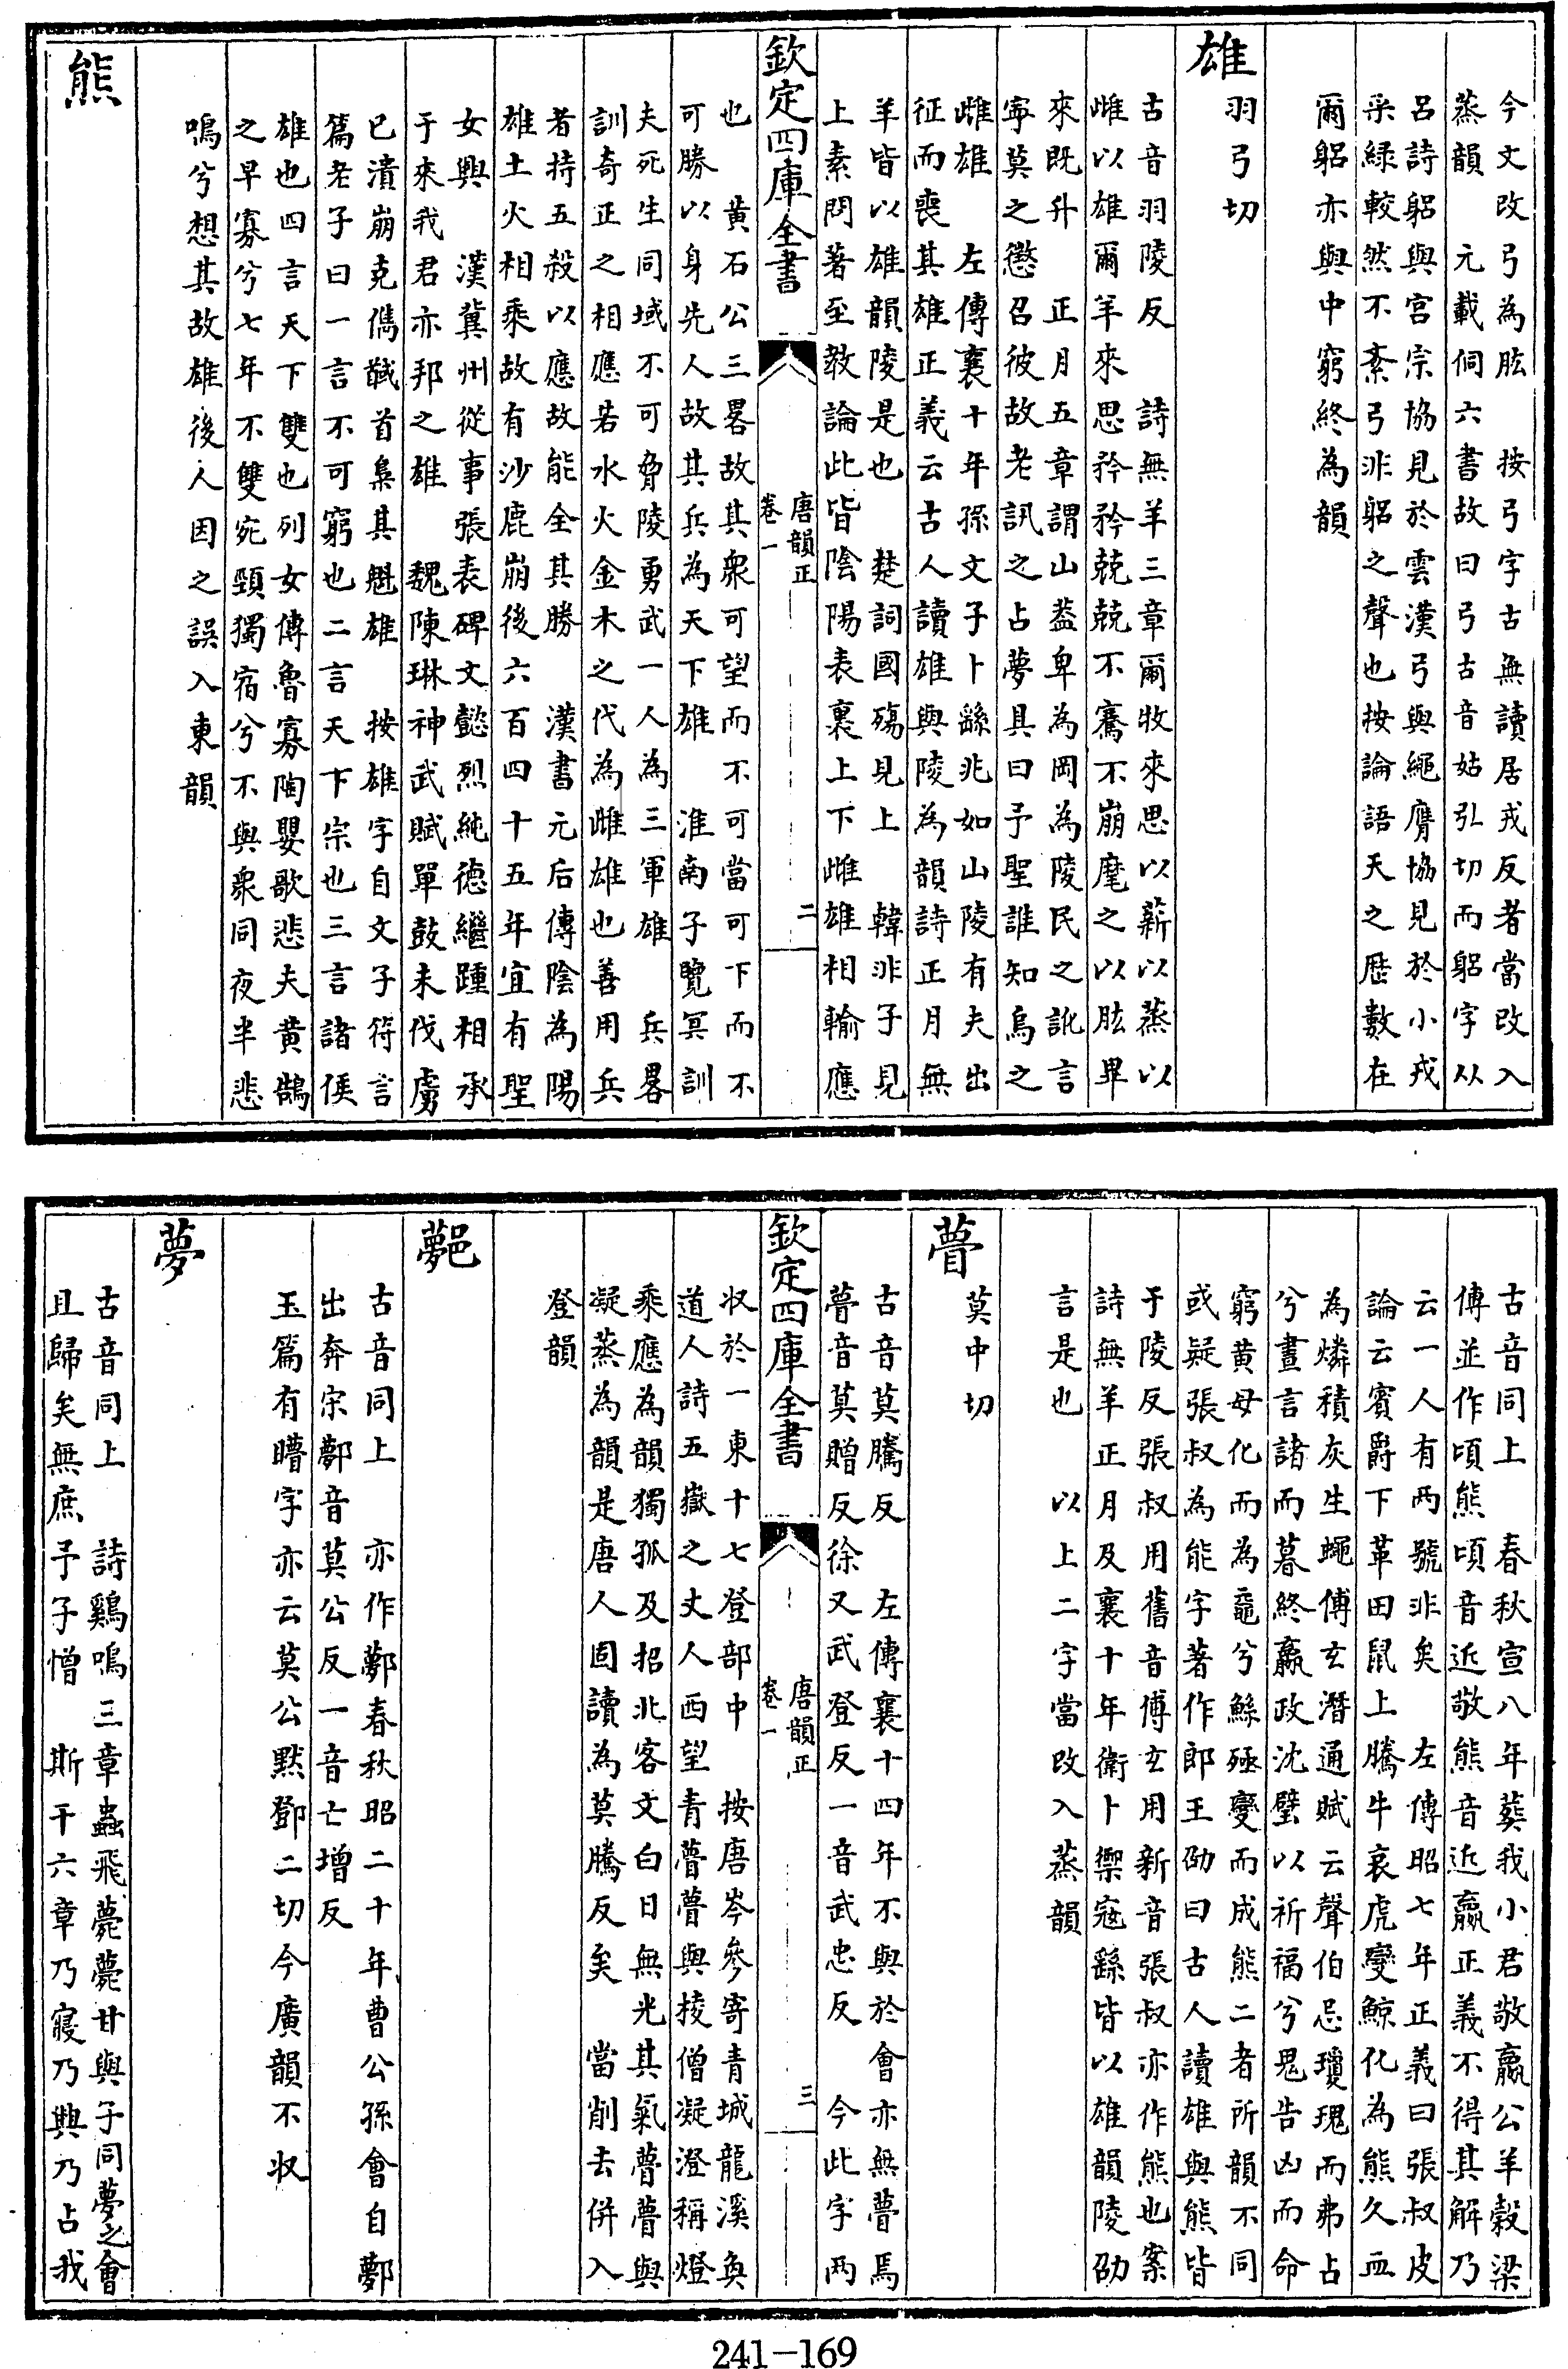 今文改弓為肱　按弓字古無讀居戎反者當改入
蒸韻　元載侗六書故曰弓古音姑弘切而躬字从
呂詩躬與宮宗協見於雲漢弓與繩膺協見於小戎
采緑較然不紊弓非躬之聲也按論語天之厯數在
爾躬亦與中窮終為韻
雄
羽弓切
古音羽陵反　詩無羊三章爾牧來思以薪以蒸以
雌以雄爾羊來思矜矜兢兢不騫不崩麾之以肱畢
來既升　正月五章謂山葢卑為岡為陵民之訛言
寧莫之懲召彼故老訊之占夢具曰予聖誰知烏之
雌雄　左傳襄十年孫文子卜繇兆如山陵有夫出
征而喪其雄正義云古人讀雄與陵為韻詩正月無
羊皆以雄韻陵是也　楚詞國殤見上　韓非子見
上素問著至教論此皆陰陽表裏上下雌雄相輸應
欽定四庫全書
唐韻正
卷一
二
也　黄石公三畧故其衆可望而不可當可下而不
可勝以身先人故其兵為天下雄　淮南子覽冥訓
夫死生同域不可脅陵勇武一人為三軍雄　兵畧
訓奇正之相應若水火金木之代為雌雄也善用兵
者持五殺以應故能全其勝　漢書元后傳陰為陽
雄土火相乘故有沙鹿崩後六百四十五年宜有聖
女興　漢冀州從事張表碑文懿烈純德繼踵相承
于來我君亦邦之雄　魏陳琳神武賦單鼓未伐虜
已潰崩克儁馘首梟其魁雄　按雄字自文子符言
篇老子曰一言不可窮也二言天下宗也三言諸侯
雄也四言天下雙也列女傳魯寡陶嬰歌悲夫黄鵠
之早寡兮七年不雙宛頸獨宿兮不與衆同夜半悲
鳴兮想其故雄後人因之誤入東韻
熊
古音同上　春秋宣八年葬我小君敬嬴公羊穀梁
傳並作頃熊頃音近敬熊音近嬴正義不得其解乃
云一人有兩號非矣　左傳昭七年正義曰張叔皮
論云賓爵下革田鼠上騰牛哀虎變鯀化為熊久血
為燐積灰生蠅傅玄潛通賦云聲伯忌瓊瑰而弗占
兮晝言諸而暮終嬴政沈璧以祈福兮鬼告凶而命
窮黄母化而為黿兮鯀殛變而成熊二者所韻不同
或疑張叔為能字著作郎王劭曰古人讀雄與熊皆
于陵反張叔用舊音傅玄用新音張叔亦作熊也案
詩無羊正月及襄十年衛卜禦寇繇皆以雄韻陵劭
言是也　以上二字當改入蒸韻
瞢
莫中切
古音莫騰反　左傳襄十四年不與於會亦無瞢焉
瞢音莫贈反徐又武登反一音武忠反　今此字兩
欽定四庫全書
唐韻正
卷一
三
収於一東十七登部中　按唐岑參寄青城龍溪奐
道人詩五嶽之丈人西望青瞢瞢與棱僧凝澄稱燈
乘應為韻獨孤及招北客文白日無光其氣瞢瞢與
凝蒸為韻是唐人固讀為莫騰反矣　當削去併入
登韻
鄸
古音同上　亦作鄸春秋昭二十年曹公孫會自鄸
出奔宋鄸音莫公反一音亡增反
玉篇有瞢字亦云莫公黙鄧二切今廣韻不収
夢
古音同上　詩鷄鳴三章蟲飛薨薨甘與子同夢之會
且歸矣無庶予子憎　斯干六章乃寢乃興乃占我
241-169